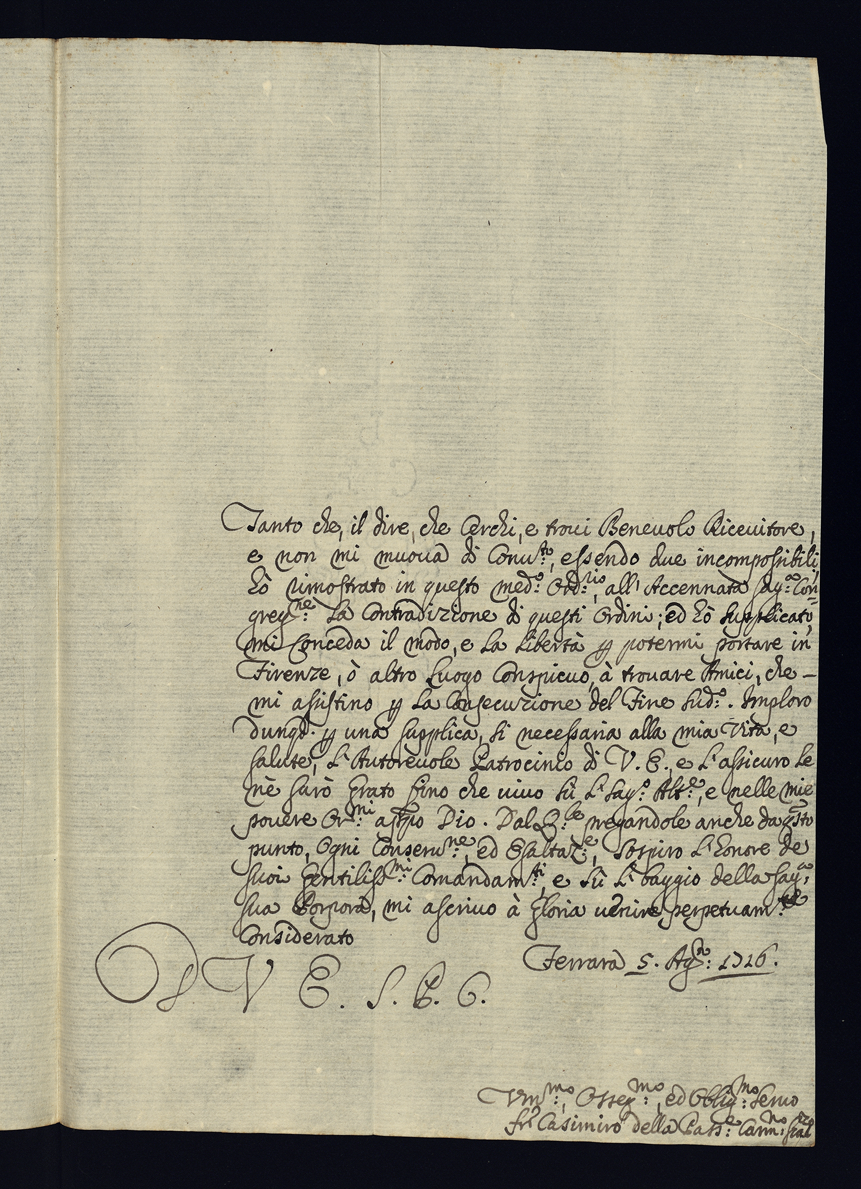 Tanto che, il dire, che Cerchi, e troui Beneuolo Riceuitore,
e non mi muoua di Conu.to, essendo due incompossibili,
hò rimostrato in questo med.o Ord.rio, all' Accennata Sag.a Con=
greg.ne: La Contradizione di questi Ordini; ed hò supplicato,
mi Conceda il modo, e La Libertà p potermi portare in
Firenze, ò altro Luogo Conspicuo, à trouare Amici, che –
mi assistino p La Consecuzione del Fine Sud.o. Imploro
dunq. p una supplica, sì necessaria alla mia Vita, e
salute, L'Autoreuole Patrocinio di V. E., e L'assicuro Le
nè sarò Grato fino che viuo sù L' Sag.o Alt.e, e nelle mie
pouere Or.ni app.o Dio. Dal Q.le pregandole anche da q.sto
punto, Ogni Conseru.ne, ed Esaltaz.e, sospiro L'honore de
suoi Gentiliss.mi Comandam.ti, e sù L' baggio della Sag.a
sua Porpora, mi ascriuo à Gloria uenire perpetuam.te
Considerato
Ferrara 5. Ag.to: 1726.
D V E. S. P. C.
Vm.mo, Osseq.mo, ed Oblig.mo Seruo
fr. Casimiro della Pass.e Carm.no